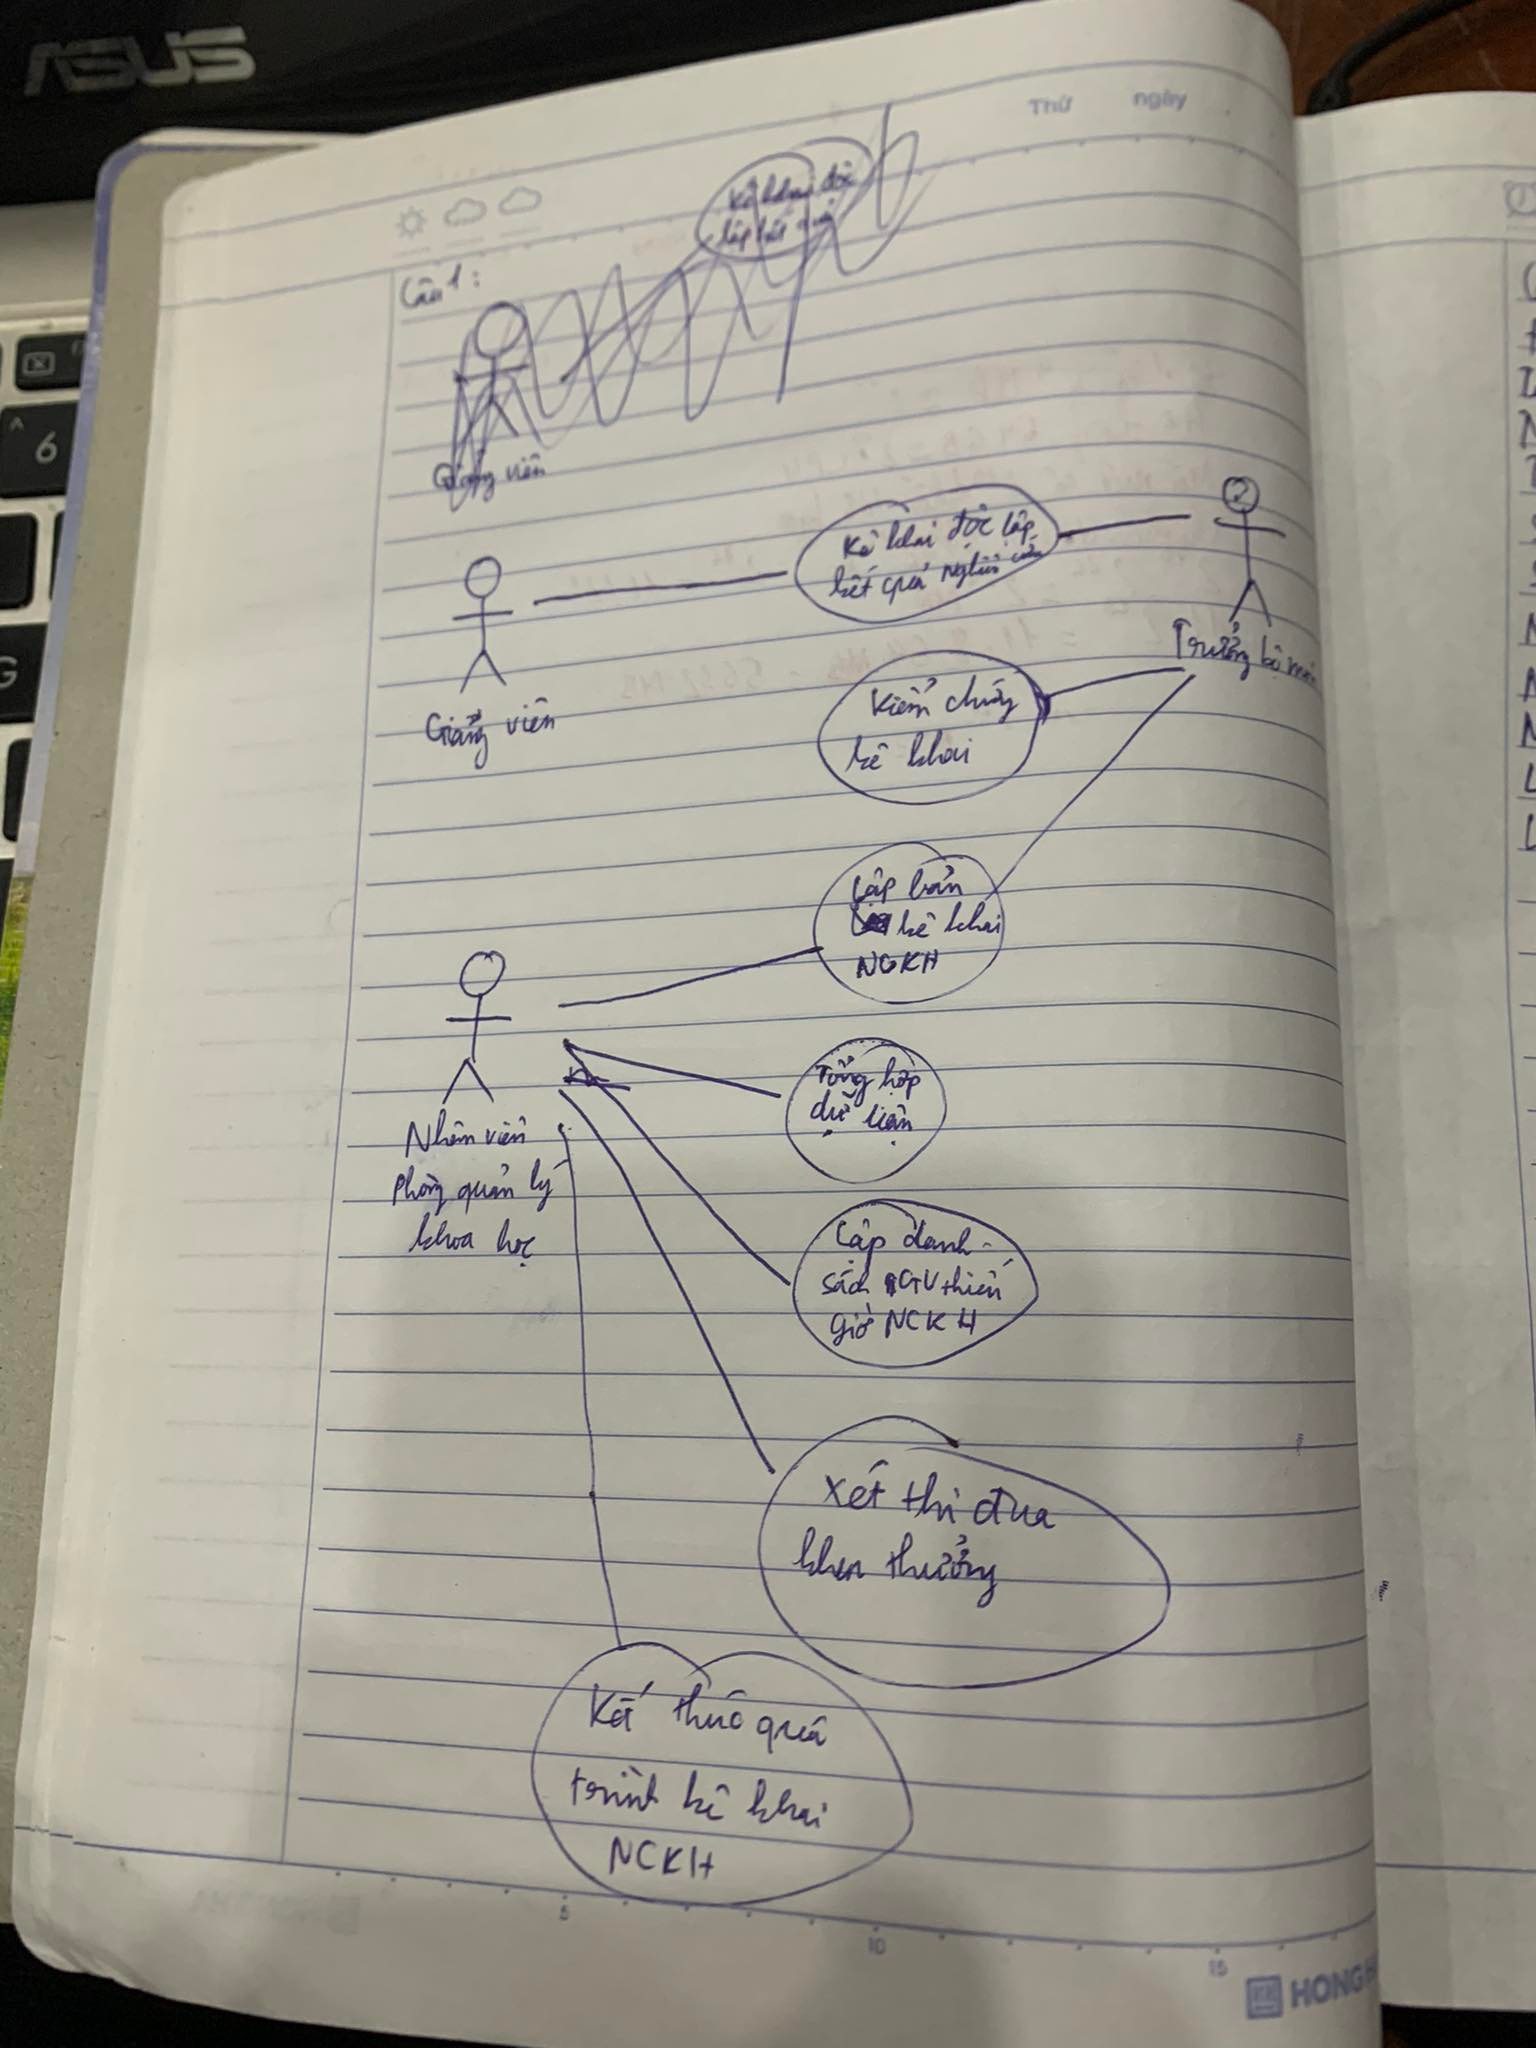 ASUS
Thứ ngày
Câu 1:
Kê khai độc
lập kết quả
Giảng viên
Kê khai độc lập
kết quả nghiên cứu
Giảng viên
Trưởng bộ môn
Kiểm chứng
kê khai
Lập bản
kê khai
NGKH
Nhân viên
Phòng quản lý
khoa học
Tổng hợp
dữ liệu
Lập danh
sách GV thiếu
giờ NCKH
Xét thi đua
khen thưởng
Kết thúc quá
trình kê khai
NCKH
5 10 15
HONG H
6
G